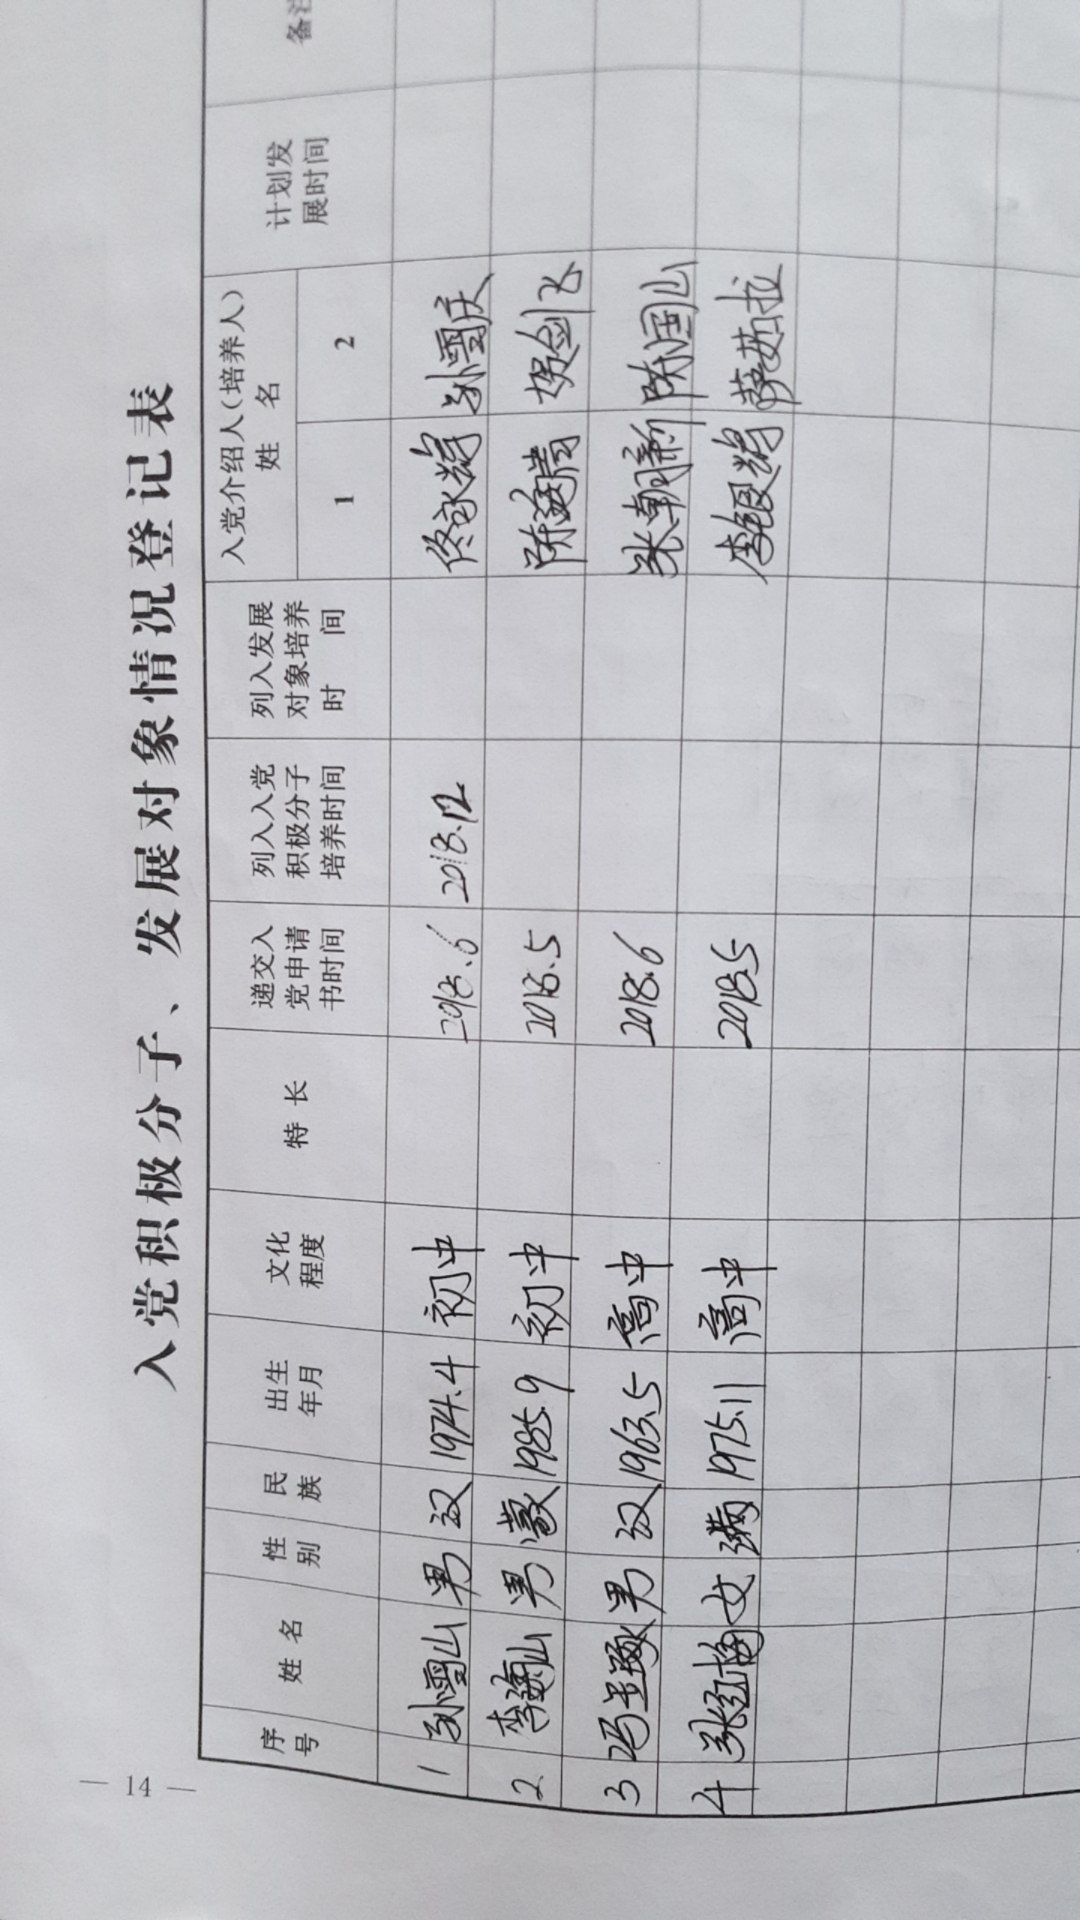 入党积极分子、发展对象情况登记表
序号 姓名 性别 民族 出生年月 文化程度 特长 递交入党申请书时间 列入入党积极分子培养时间 列入发展对象培养时间 入党介绍人(培养人)姓名 计划发展时间 备注
1 2
1 孙雪山 男 汉 1974.4 初中 2018.6 2018.12 佟永辉 孙雪庆
2 李海山 男 蒙 1985.9 初中 2018.5 陈海清 贺剑飞
3 冯玉琢 男 汉 1963.5 高中 2018.6 张朝新 陈国山
4 张红梅 女 满 1975.11 高中 2018.5 李银辉 萨茹拉
— 14 —